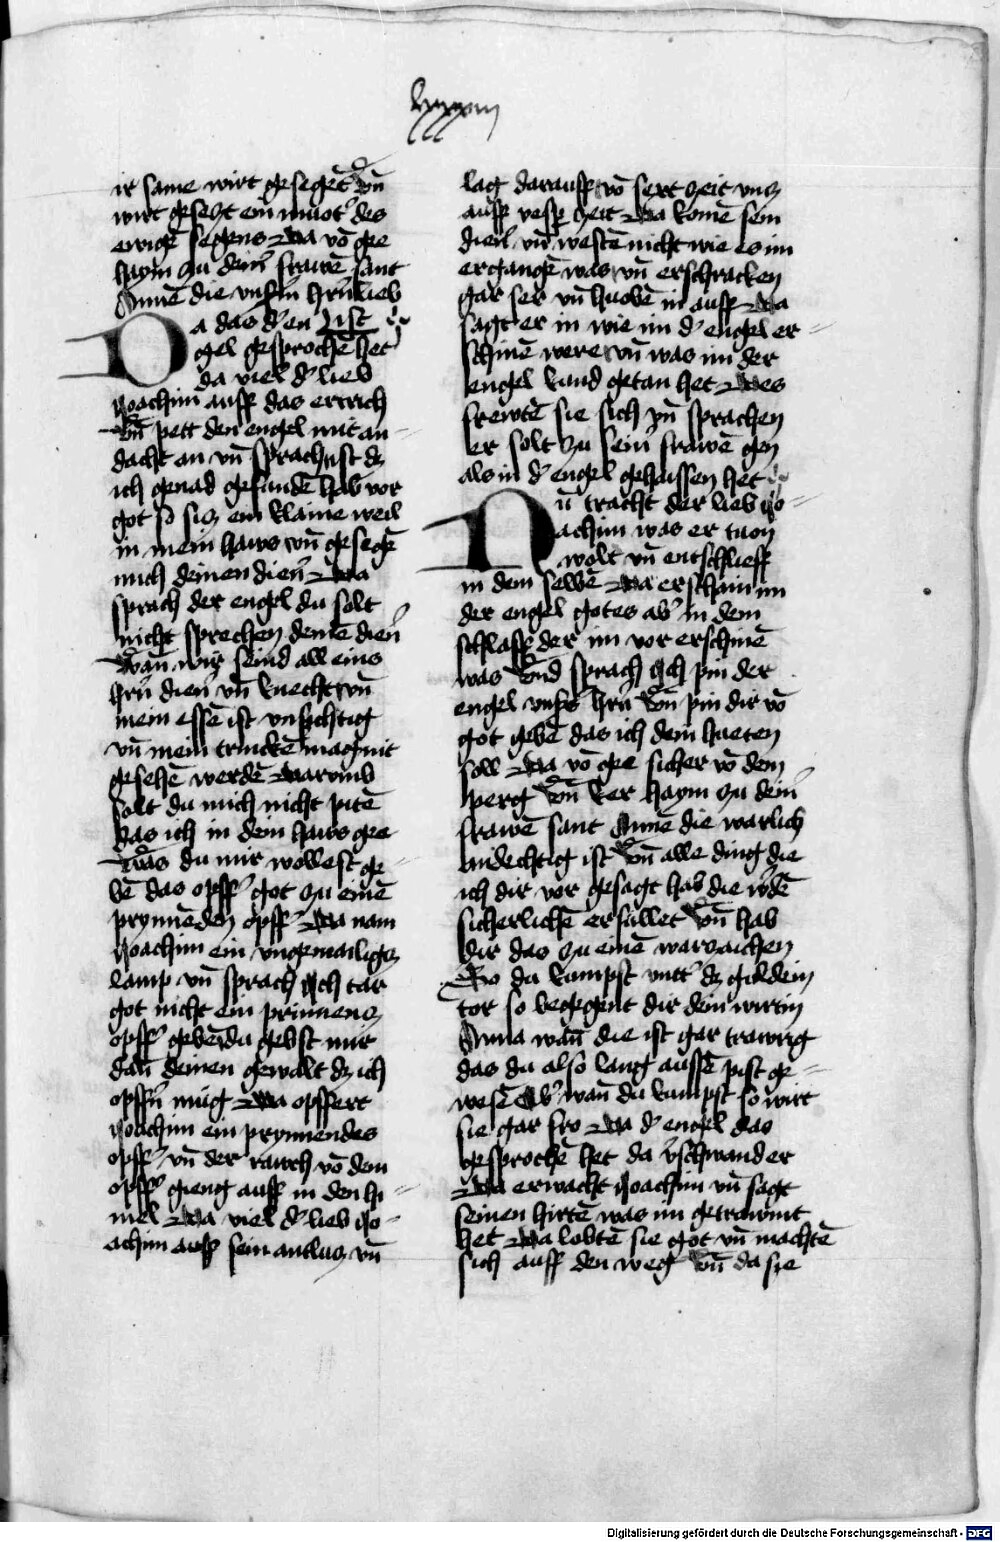 lxxxviij
ir same wirt gesegēt vn̄
wirt gesetzt ein muot' des
ewigē segens Da vō gee
haym zu dein' frawē sant
Annē die vnsm̄ hrn̄ lieb ist
Da das d' en
gel gesprochē het
da viel d' lieb
Joachim auff das ertrich
vn̄ pett den engel mit an
dacht an vn̄ sprach ist dz
ich genad gefundē hab vor
got so sitz ein klaine weil
in mein haws vn̄ gesegē
mich deinen dien' Da
sprach der engel du solt
nicht sprechen deinē dien'
wan̄ wir seind all eins
hrn̄ dien' vn̄ knecht vn̄
mein essē ist vnsichtig
vn̄ mein trinckē mag nit
gesehē werdē Darumb
solt du mich nicht pitē
das ich in dein haws gee
was du mir wollest ge
bē das opff' got zu einē
prynnēden opff' Da nam
Joachim ein vngemailigs
lamp vn̄ sprach Ich tar
got nicht ein prinnens
opff' gebē du gebst mir
dan̄ deinen gewalt dz ich
opffn̄ müg Da opffert
Joachim ein prynnendes
opff' vn̄ der rawch vō dem
opff' gieng auff in den hi
mel Da viel d' lieb Jo
achim auff sein antlutz vn̄
lag darauff vō sext zeit vntz
auff vesp' zeit Da komē sein
dien' vn̄ westē nicht wie es im
ergangē was vn̄ erschracken
gar ser vn̄ huobē in auff Da
sagt er in wie im d' engel er
schinē were vn̄ was im der
engel kund getan het Des
frewtē sie sich vn̄ sprachen
er solt zu sein' frawē gen
als in d' engel gehaissen het
Nu tracht der lieb Jo
achim was er tuon
wolt vn̄ entschlieff
in dem selbē Da erschain im
der engel gotes ab' in dem
schlaff der im vor erschinē
was vnd sprach Ich pin der
engel vnsers hrn̄ vn̄ pin dir vō
got gebē das ich dein hueten
soll Da vō gee sicher vō dem
perg vn̄ ker haym zu dein'
frawē sant Annē die warlich
andechtig ist vn̄ alle ding die
ich dir vor gesagt hab die w'dē
sicherlichē erfüllet vn̄ hab
dir das zu einē warzaichen
So du kumpst vntt' dz guldein
tor so begegent dir dein wirtin
Anna wan̄ die ist gar trawrig
das du also lang aussē pist ge
wesē Ab' wan̄ du kumpst so wirt
sie gar fro Da d' engel das
gesprochē het da v'schwand er
Da erwacht Joachim vn̄ sagt
seinen hirtē was im getrawmt
het Da lobtē sie got vn̄ machtē
sich auff den weg vn̄ da sie
Digitalisierung gefördert durch die Deutsche Forschungsgemeinschaft - DFG